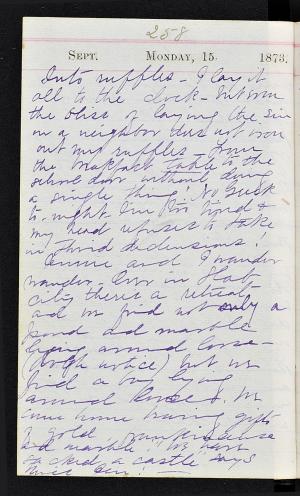 258
SEPT. MONDAY, 15. 1873.
Into ruffles – I lay it
all to the clock – but even
the bliss of laying the sin
on a neighbor does not iron
out my ruffles – from
the breakfast table to the
school door without doing
a single thing! No Greek
to-night I'm too tired &
my head refuses to take
in third declensions!
and I wander
wander. Over in that
city there's a retreat
and we find not only a
pond and marble
lying around loose –
(notice) but we
find a boy lying
around loose. We
come home bearing gifts
of gold, frankincense
and marble
a castle says